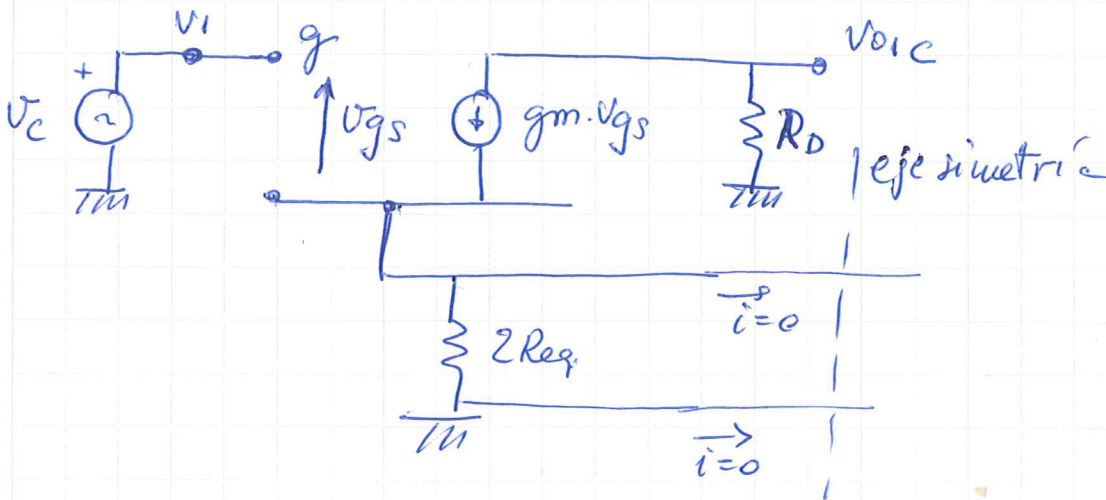 v1
g
vo1c
+
vc
~
vgs
gm.vgs
RD
eje simetría
i=0
2Req.
i=0